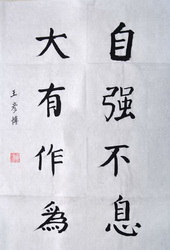 自强不息
大有作為
王彥博